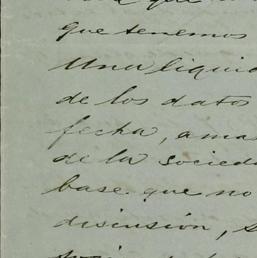 que tenemos
Una liquid
de los datos
fecha, a ma
de la socieda
base que no
discusión, s